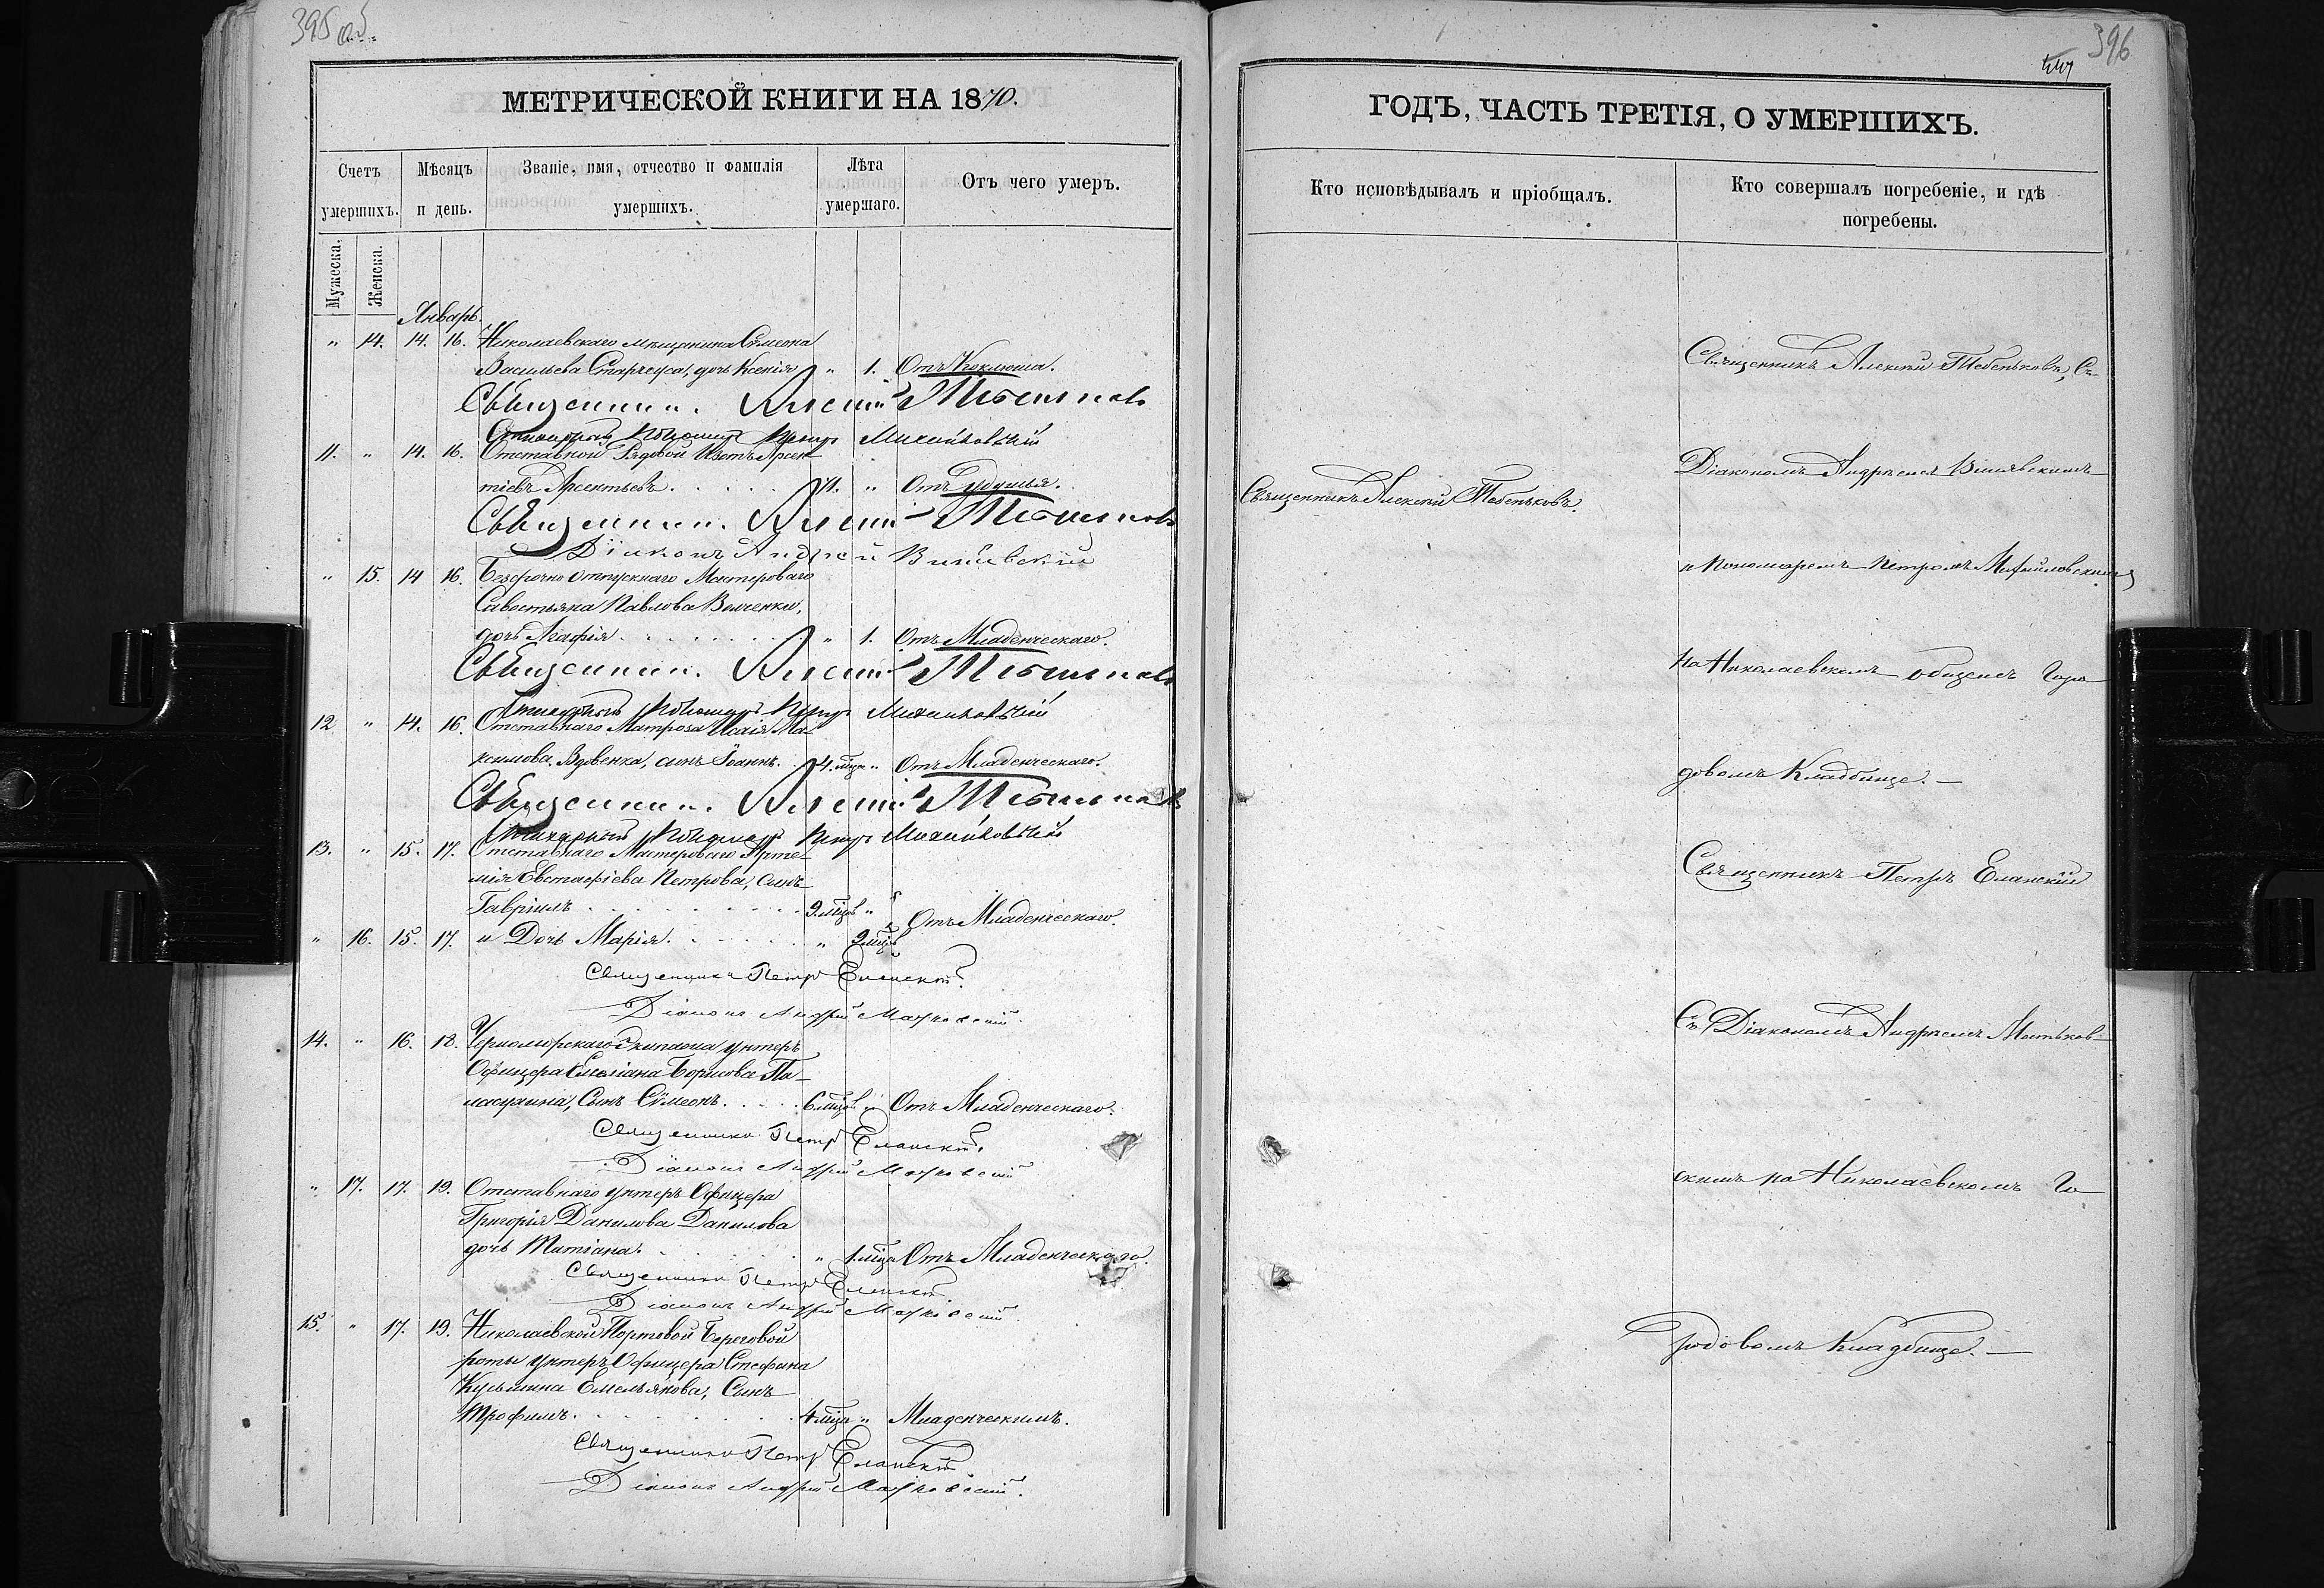 395 об.
МЕТРИЧЕСКОЙ КНИГИ НА 1870.
Счетъ умершихъ.
Мѣсяцъ и день.
Званіе, имя, отчество и фамилія умершихъ.
Лѣта умершаго.
Отъ чего умеръ.
Мужеска.
Женска.
Январь.
" 14. 14. 16. Николаевскаго мѣщанина Сѵмеона
Васильева Старчеуса, дочь Ксенія " 1. Отъ Коклюша.
Священникъ Алексѣй Тебеньковъ
Пономарь Петръ Михайловскій
11. " 14. 16. Отставной Рядовой Изотъ Арсен-
тіевъ Арсентьевъ. 71. " Отъ Удушья.
Священникъ Алексѣй Тебеньковъ
Діаконъ Андрей Виніевскій
" 15. 14 16. Безсрочно отпускнаго Мастероваго
Савостьяна Павлова Волченки,
дочь Агафія. " 1. Отъ Младенческаго.
Священникъ Алексѣй Тебеньковъ
Пономарь Петръ Михайловскій
12 " 14. 16. Отставнаго Матроза Исаія Ма-
ксимова Вдовенка, сынъ Іоаннъ. 4. мца " Отъ Младенческаго.
Священникъ Алексѣй Тебеньковъ
Пономарь Петръ Михайловскій
13. " 15. 17. Отставнаго Мастероваго Арте-
мія Евстафіева Петрова, Сынъ
Гавріилъ 9. мцвъ "
Отъ Младенческаго.
" 16. 15. 17. и Дочь Марія. " 9 мцвъ
Священникъ Петръ Еланскій
Діаконъ Андрей
14. " 16. 18. Черноморскаго Экипажа унтеръ
Офицера Емеліана Борисова Па-
, Сынъ Сѵмеонъ. 6 мцвъ " Отъ Младенческаго.
Священникъ Петръ Еланскій
Діаконъ Андрей
" 17. 17. 19. Отставнаго унтеръ Офицера
Григорія Данилова Данилова
дочь Татіана. " 1. мца Отъ Младенческаго.
Священникъ Петръ Еланскій
Діаконъ Андрей
15. " 17. 19. Николаевской Портовой Береговой
роты унтеръ Офицера Стефана
Кузьмина Емельянова, Сынъ
Трофимъ. 4 мца " Младенческимъ.
Священникъ Петръ Еланскій
Діаконъ Андрей
396
ГОДЪ, ЧАСТЬ ТРЕТІЯ, О УМЕРШИХЪ.
Кто исповѣдывалъ и пріобщалъ.
Кто совершалъ погребеніе, и гдѣ погребены.
Священникъ Алексѣй Тебеньковъ.
Священникъ Алексѣй Тебеньковъ, Съ
Діакономъ Андреемъ Виніевскимъ
и Пономаремъ Петромъ Михайловскимъ
На Николаевскомъ общемъ Горо-
довомъ Кладбище. —
Священникъ Петръ Еланскій
Съ Діакономъ Андреемъ
скимъ на Николаевскомъ Го-
родовомъ Кладбище. —